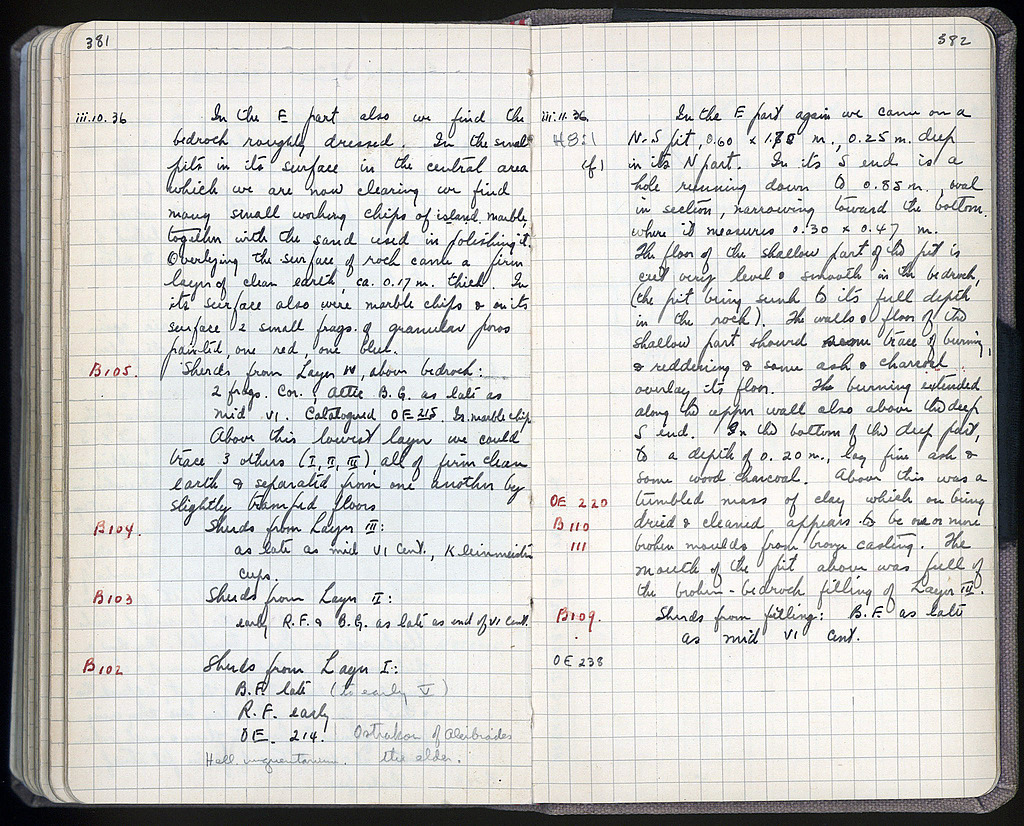 381
iii.10.36 In the E part also we find the
bedrock roughly dressed. In the small
pits in its surface in the central area
which we are now clearing we find
many small working chips of island marble,
together with the sand used in polishing it.
Overlying the surface of rock came a firm
layer of clean earth, ca. 0.17 m. thick. In
its surface also were marble chips & on its
surface 2 small frags. of granular poros
painted, one red, one blue.
B105. Sherds from Layer IV, above bedrock:
2 frags. Cor. Attic B.G. as late as
mid VI. Catalogued OE 215. In marble chip
Above this lowest layer we could
trace 3 others (I, II, III), all of firm clean
earth & separated from one another by
slightly tramped floors
B104. Sherds from Layer III:
as late as mid VI Cent., Kleinmeister
cups.
B103 Sherds from Layer II:
early R.F. & B.G. as late as end of VI Cent.
B102 Sherds from Layer I:
B.F. late (to early V)
R.F. early
OE 214. Ostrakon of Alcibiades
Hell. unguentarium. the elder.
382
iii.11.36. In the E part again we came on a
H8:1 N-S pit, 0.60 x m., 0.25 m. deep
(f) in its N part. In its S end is a
hole running down to 0.85 m., oval
in section, narrowing toward the bottom.
where it measures 0.30 x 0.47 m.
The floor of the shallow part of the pit is
cut very level & smooth in the bedrock,
(the pit being sunk to its full depth
in the rock). The walls & floor of the
shallow part showed trace of burning,
& reddening & some ash & charcoal
overlay its floor. The burning extended
along the upper wall also above the deep
S end. In the bottom of the deep part,
to a depth of 0.20 m., lay fine ash &
some wood charcoal. Above this was a
OE 220 tumbled mass of clay which on being
B110 dried & cleaned appears to be one or more
111 broken moulds from bronze casting. The
mouth of the pit above was full of
the broken-bedrock filling of Layer III.
B109. Sherds from filling: B.F. as late
as mid VI cent.
OE 238